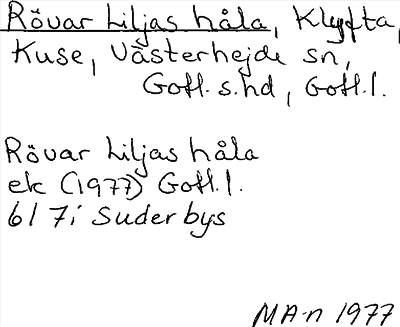 Rövar Liljas håla, Klyfta,
Kuse, Västerhejde sn,
Gotl. s. hd, Gotl. l.
Rövar Liljas håla
ek (1977) Gotl. l.
6I 7i Suderbys
MA-n 1977